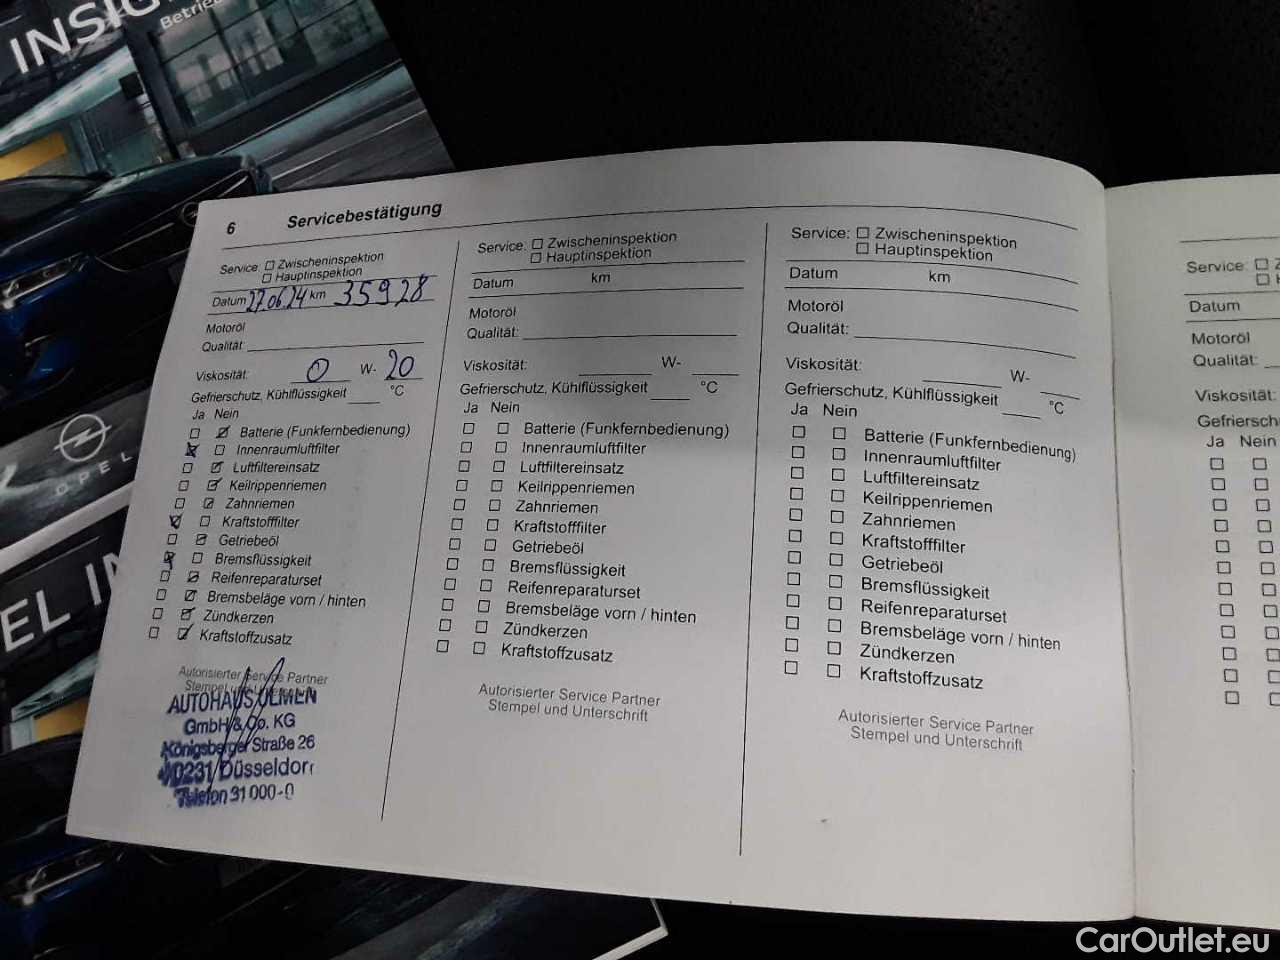 INSIG
Betrie
OPEL
EL IN
6 Servicebestätigung
Service: ☐ Zwischeninspektion
☐ Hauptinspektion
Datum 27.06.24 km 35928
Motoröl
Qualität:
Viskosität: 0 W- 20
Gefrierschutz, Kühlflüssigkeit °C
Ja Nein
☐ ☑ Batterie (Funkfernbedienung)
☒ ☐ Innenraumluftfilter
☐ ☑ Luftfiltereinsatz
☐ ☑ Keilrippenriemen
☐ ☑ Zahnriemen
☑ ☐ Kraftstofffilter
☐ ☑ Getriebeöl
☒ ☐ Bremsflüssigkeit
☐ ☑ Reifenreparaturset
☐ ☑ Bremsbeläge vorn / hinten
☐ ☑ Zündkerzen
☐ ☑ Kraftstoffzusatz
Autorisierter Service Partner
Stempel und Unterschrift
AUTOHAUS ULMEN
GmbH & Co. KG
Königsberger Straße 26
40231 Düsseldorf
Telefon 31 000-0
Service: ☐ Zwischeninspektion
☐ Hauptinspektion
Datum km
Motoröl
Qualität:
Viskosität: W-
Gefrierschutz, Kühlflüssigkeit °C
Ja Nein
☐ ☐ Batterie (Funkfernbedienung)
☐ ☐ Innenraumluftfilter
☐ ☐ Luftfiltereinsatz
☐ ☐ Keilrippenriemen
☐ ☐ Zahnriemen
☐ ☐ Kraftstofffilter
☐ ☐ Getriebeöl
☐ ☐ Bremsflüssigkeit
☐ ☐ Reifenreparaturset
☐ ☐ Bremsbeläge vorn / hinten
☐ ☐ Zündkerzen
☐ ☐ Kraftstoffzusatz
Autorisierter Service Partner
Stempel und Unterschrift
Service: ☐ Zwischeninspektion
☐ Hauptinspektion
Datum km
Motoröl
Qualität:
Viskosität: W-
Gefrierschutz, Kühlflüssigkeit °C
Ja Nein
☐ ☐ Batterie (Funkfernbedienung)
☐ ☐ Innenraumluftfilter
☐ ☐ Luftfiltereinsatz
☐ ☐ Keilrippenriemen
☐ ☐ Zahnriemen
☐ ☐ Kraftstofffilter
☐ ☐ Getriebeöl
☐ ☐ Bremsflüssigkeit
☐ ☐ Reifenreparaturset
☐ ☐ Bremsbeläge vorn / hinten
☐ ☐ Zündkerzen
☐ ☐ Kraftstoffzusatz
Autorisierter Service Partner
Stempel und Unterschrift
Service: ☐ Z
☐ H
Datum
Motoröl
Qualität:
Viskosität:
Gefriersch
Ja Nein
CarOutlet.eu